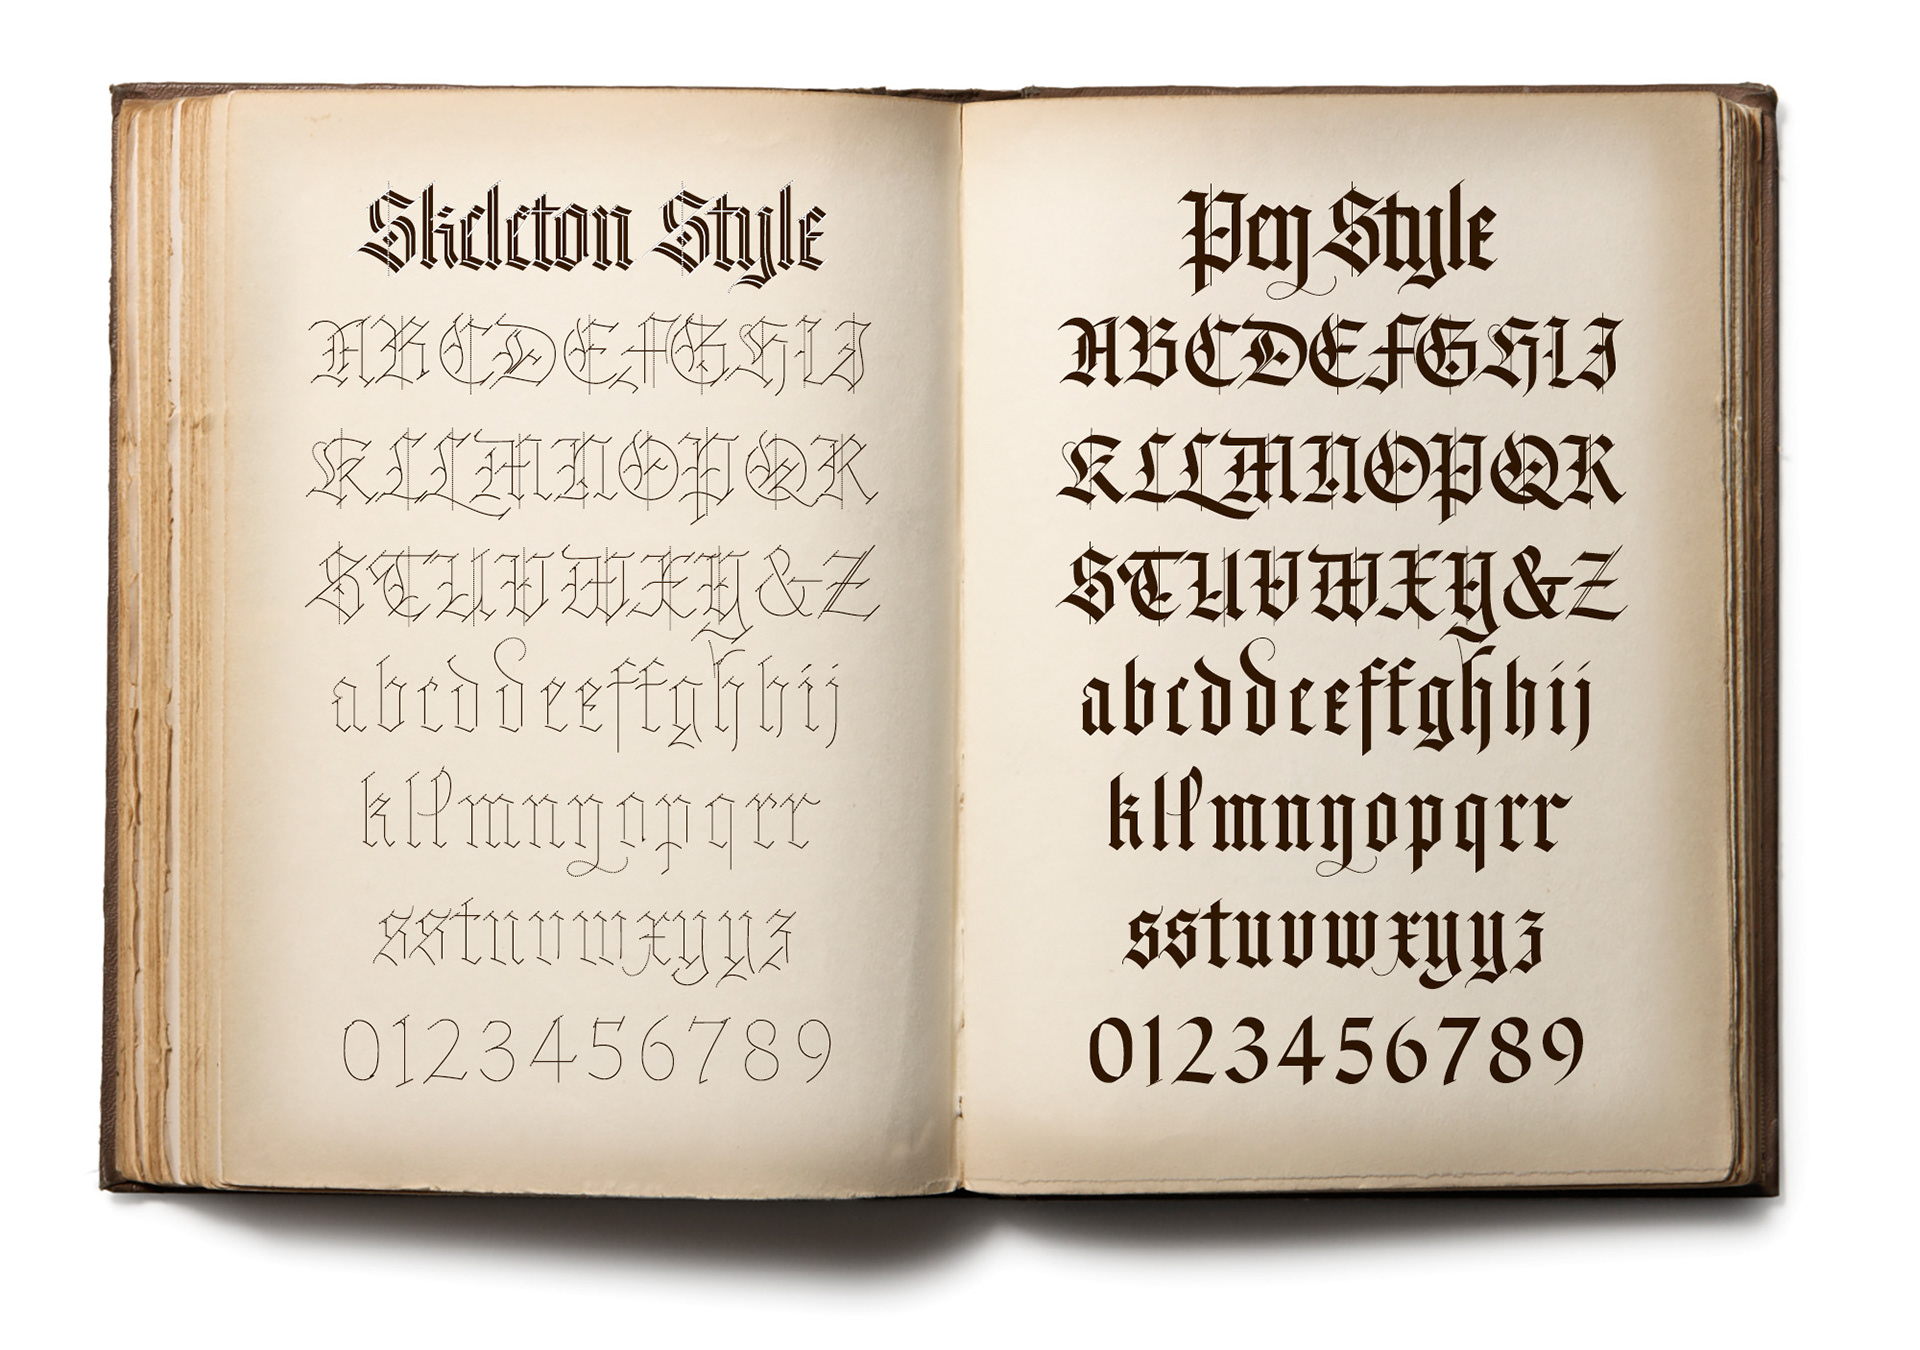 Skeleton Style
ABCDEFGHIJ
KLLMNOPQR
STUVWXY&Z
abcddeeffghhij
kllmnnopqrr
sstuvwxyyz
0123456789
Pen Style
ABCDEFGHIJ
KLLMNOPQR
STUVWXY&Z
abcddeeffghhij
kllmnnopqrr
sstuvwxyyz
0123456789